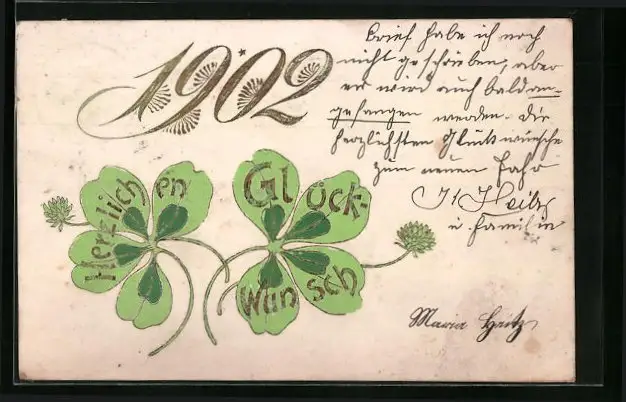 1902
Brief habe ich noch
nicht geschrieben, aber
er wird auch bald an-
gefangen werden. Die
herzlichsten Glückwünsche
zum neuen Jahr
Heitz
u. Familie
Herzlichen
Glück-
Wunsch
Maria Heitz